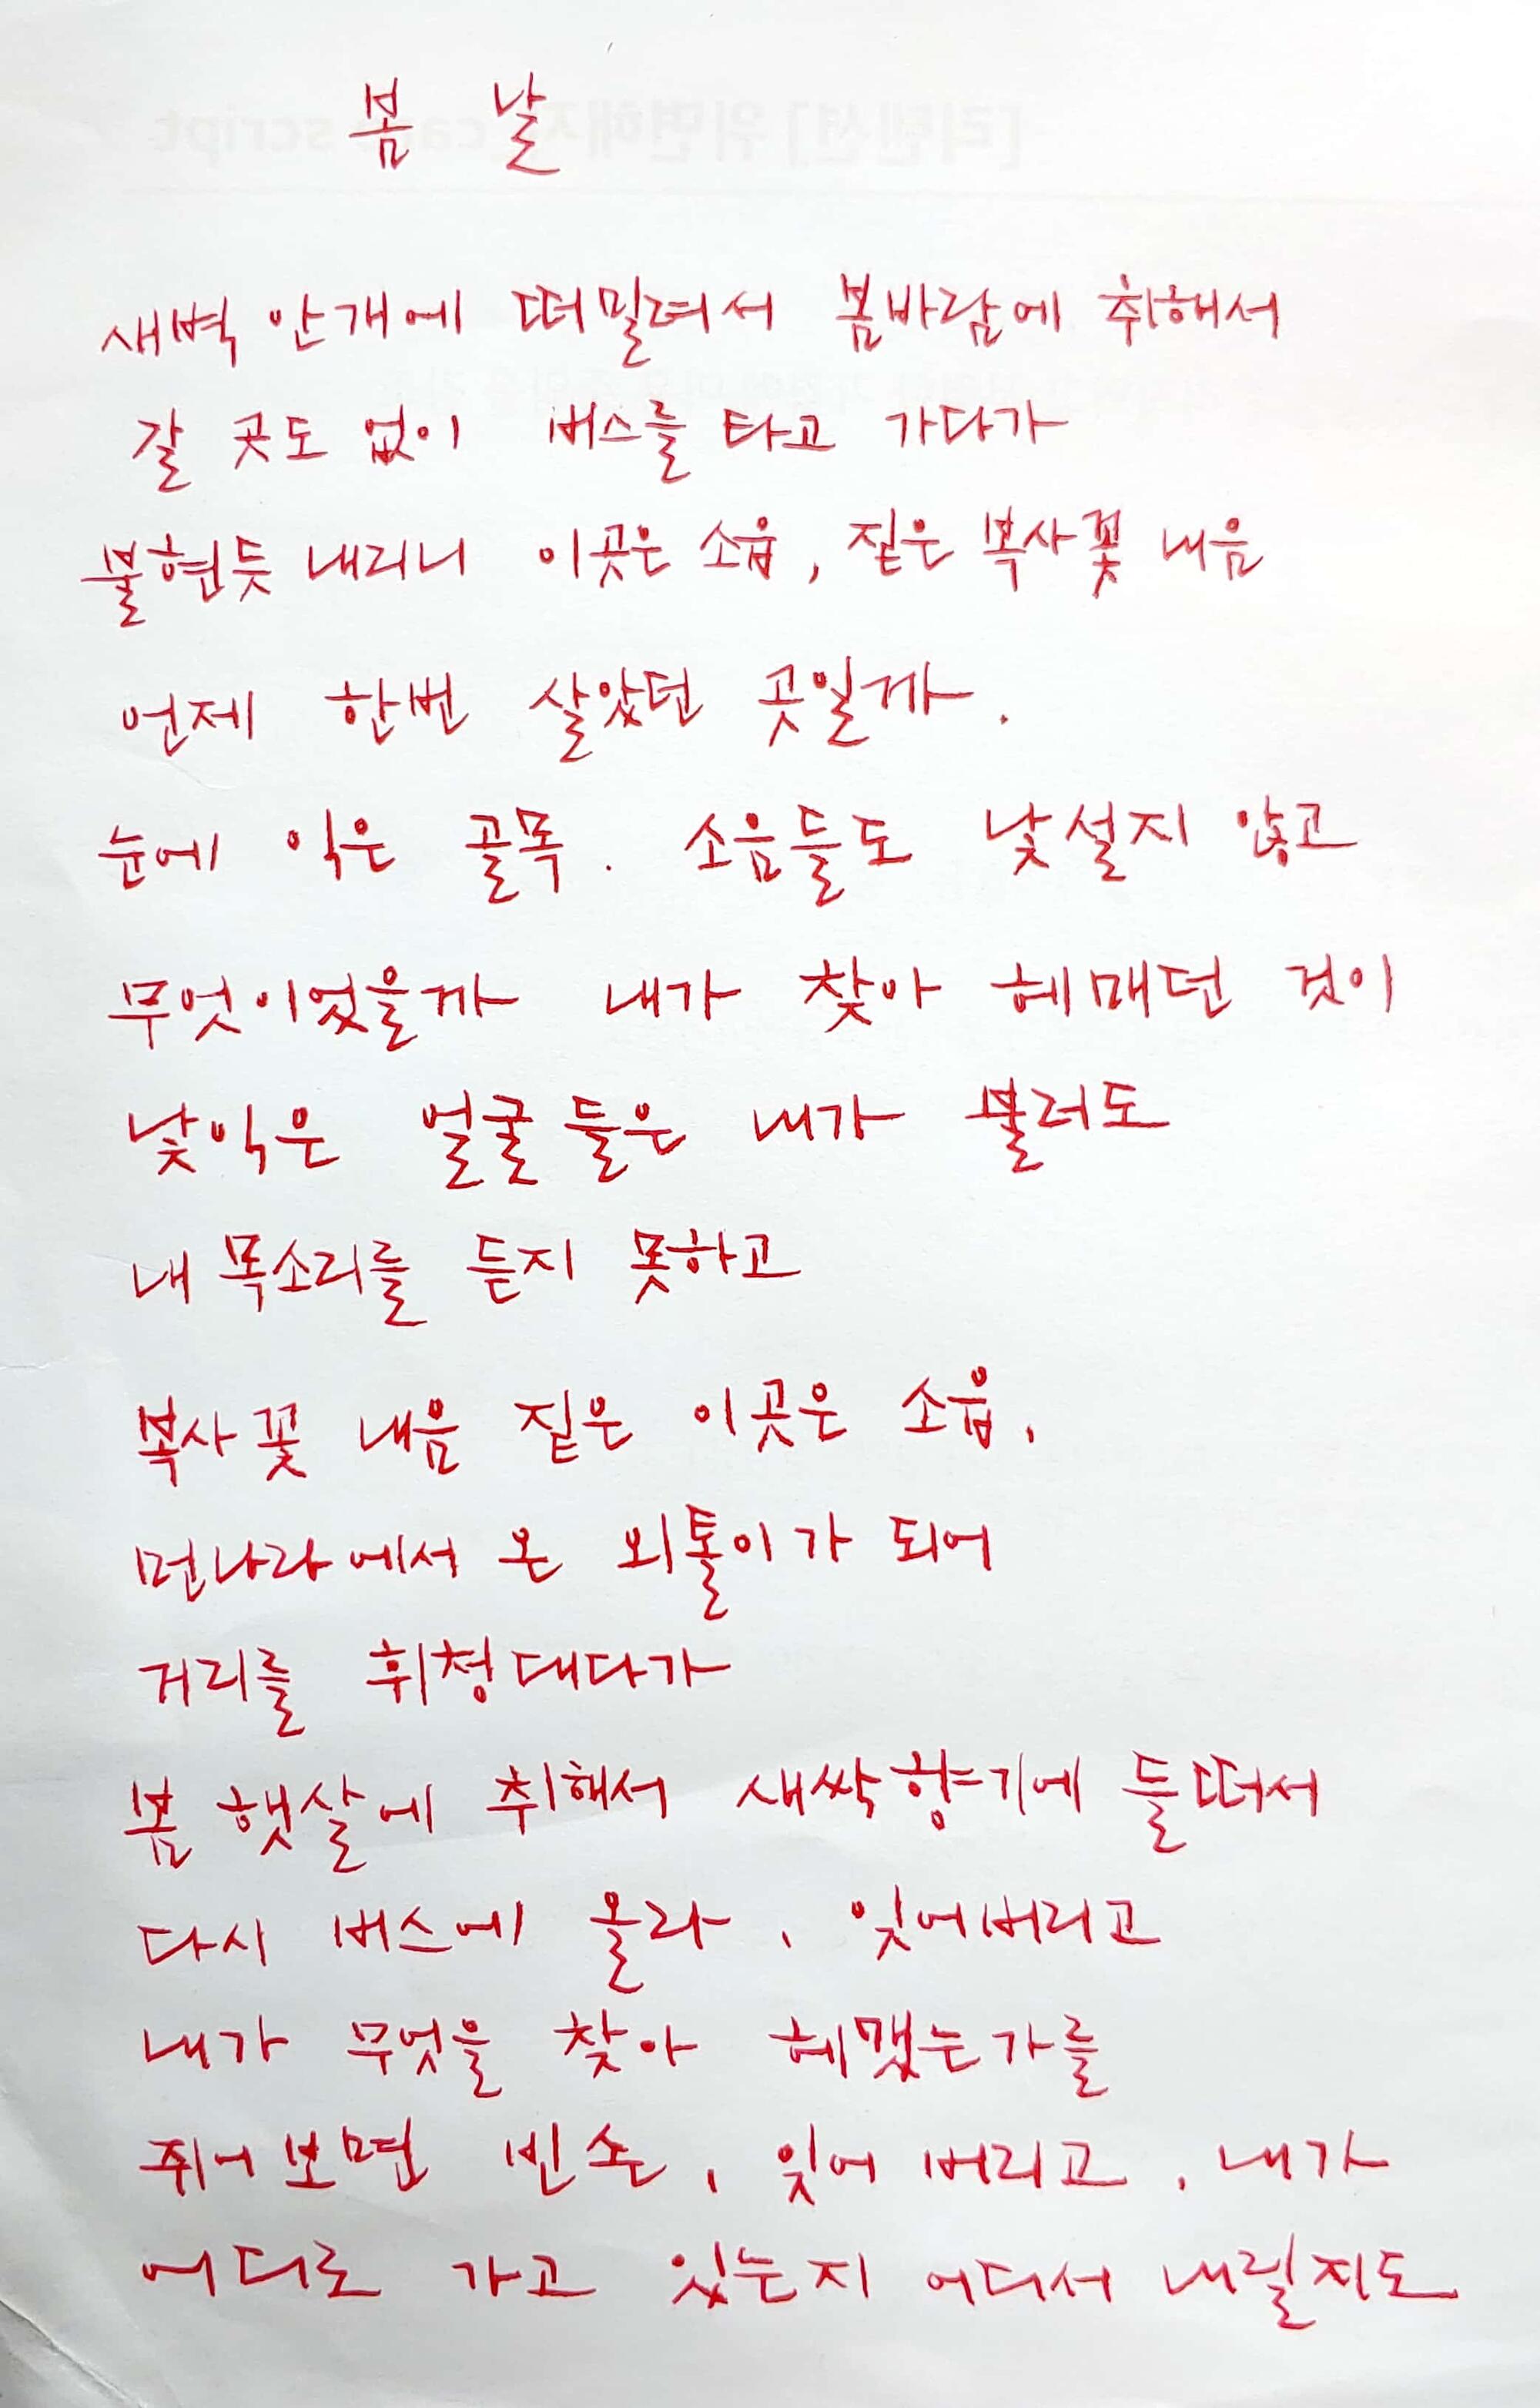 봄 날
새벽 안개에 떠밀려서 봄바람에 취해서
갈 곳도 없이 버스를 타고 가다가
불현듯 내리니 이곳은 소읍, 짙은 복사꽃 내음
언제 한번 살았던 곳일까.
눈에 익은 골목. 소음들도 낯설지 않고
무엇이었을까 내가 찾아 헤매던 것이
낯익은 얼굴들은 내가 불러도
내 목소리를 듣지 못하고
복사꽃 내음 짙은 이곳은 소읍,
먼나라에서 온 외톨이가 되어
거리를 휘청대다가
봄 햇살에 취해서 새싹향기에 들떠서
다시 버스에 올라, 잊어버리고
내가 무엇을 찾아 헤맸는가를
쥐어보면 빈손, 잊어 버리고, 내가
어디로 가고 있는지 어디서 내릴지도